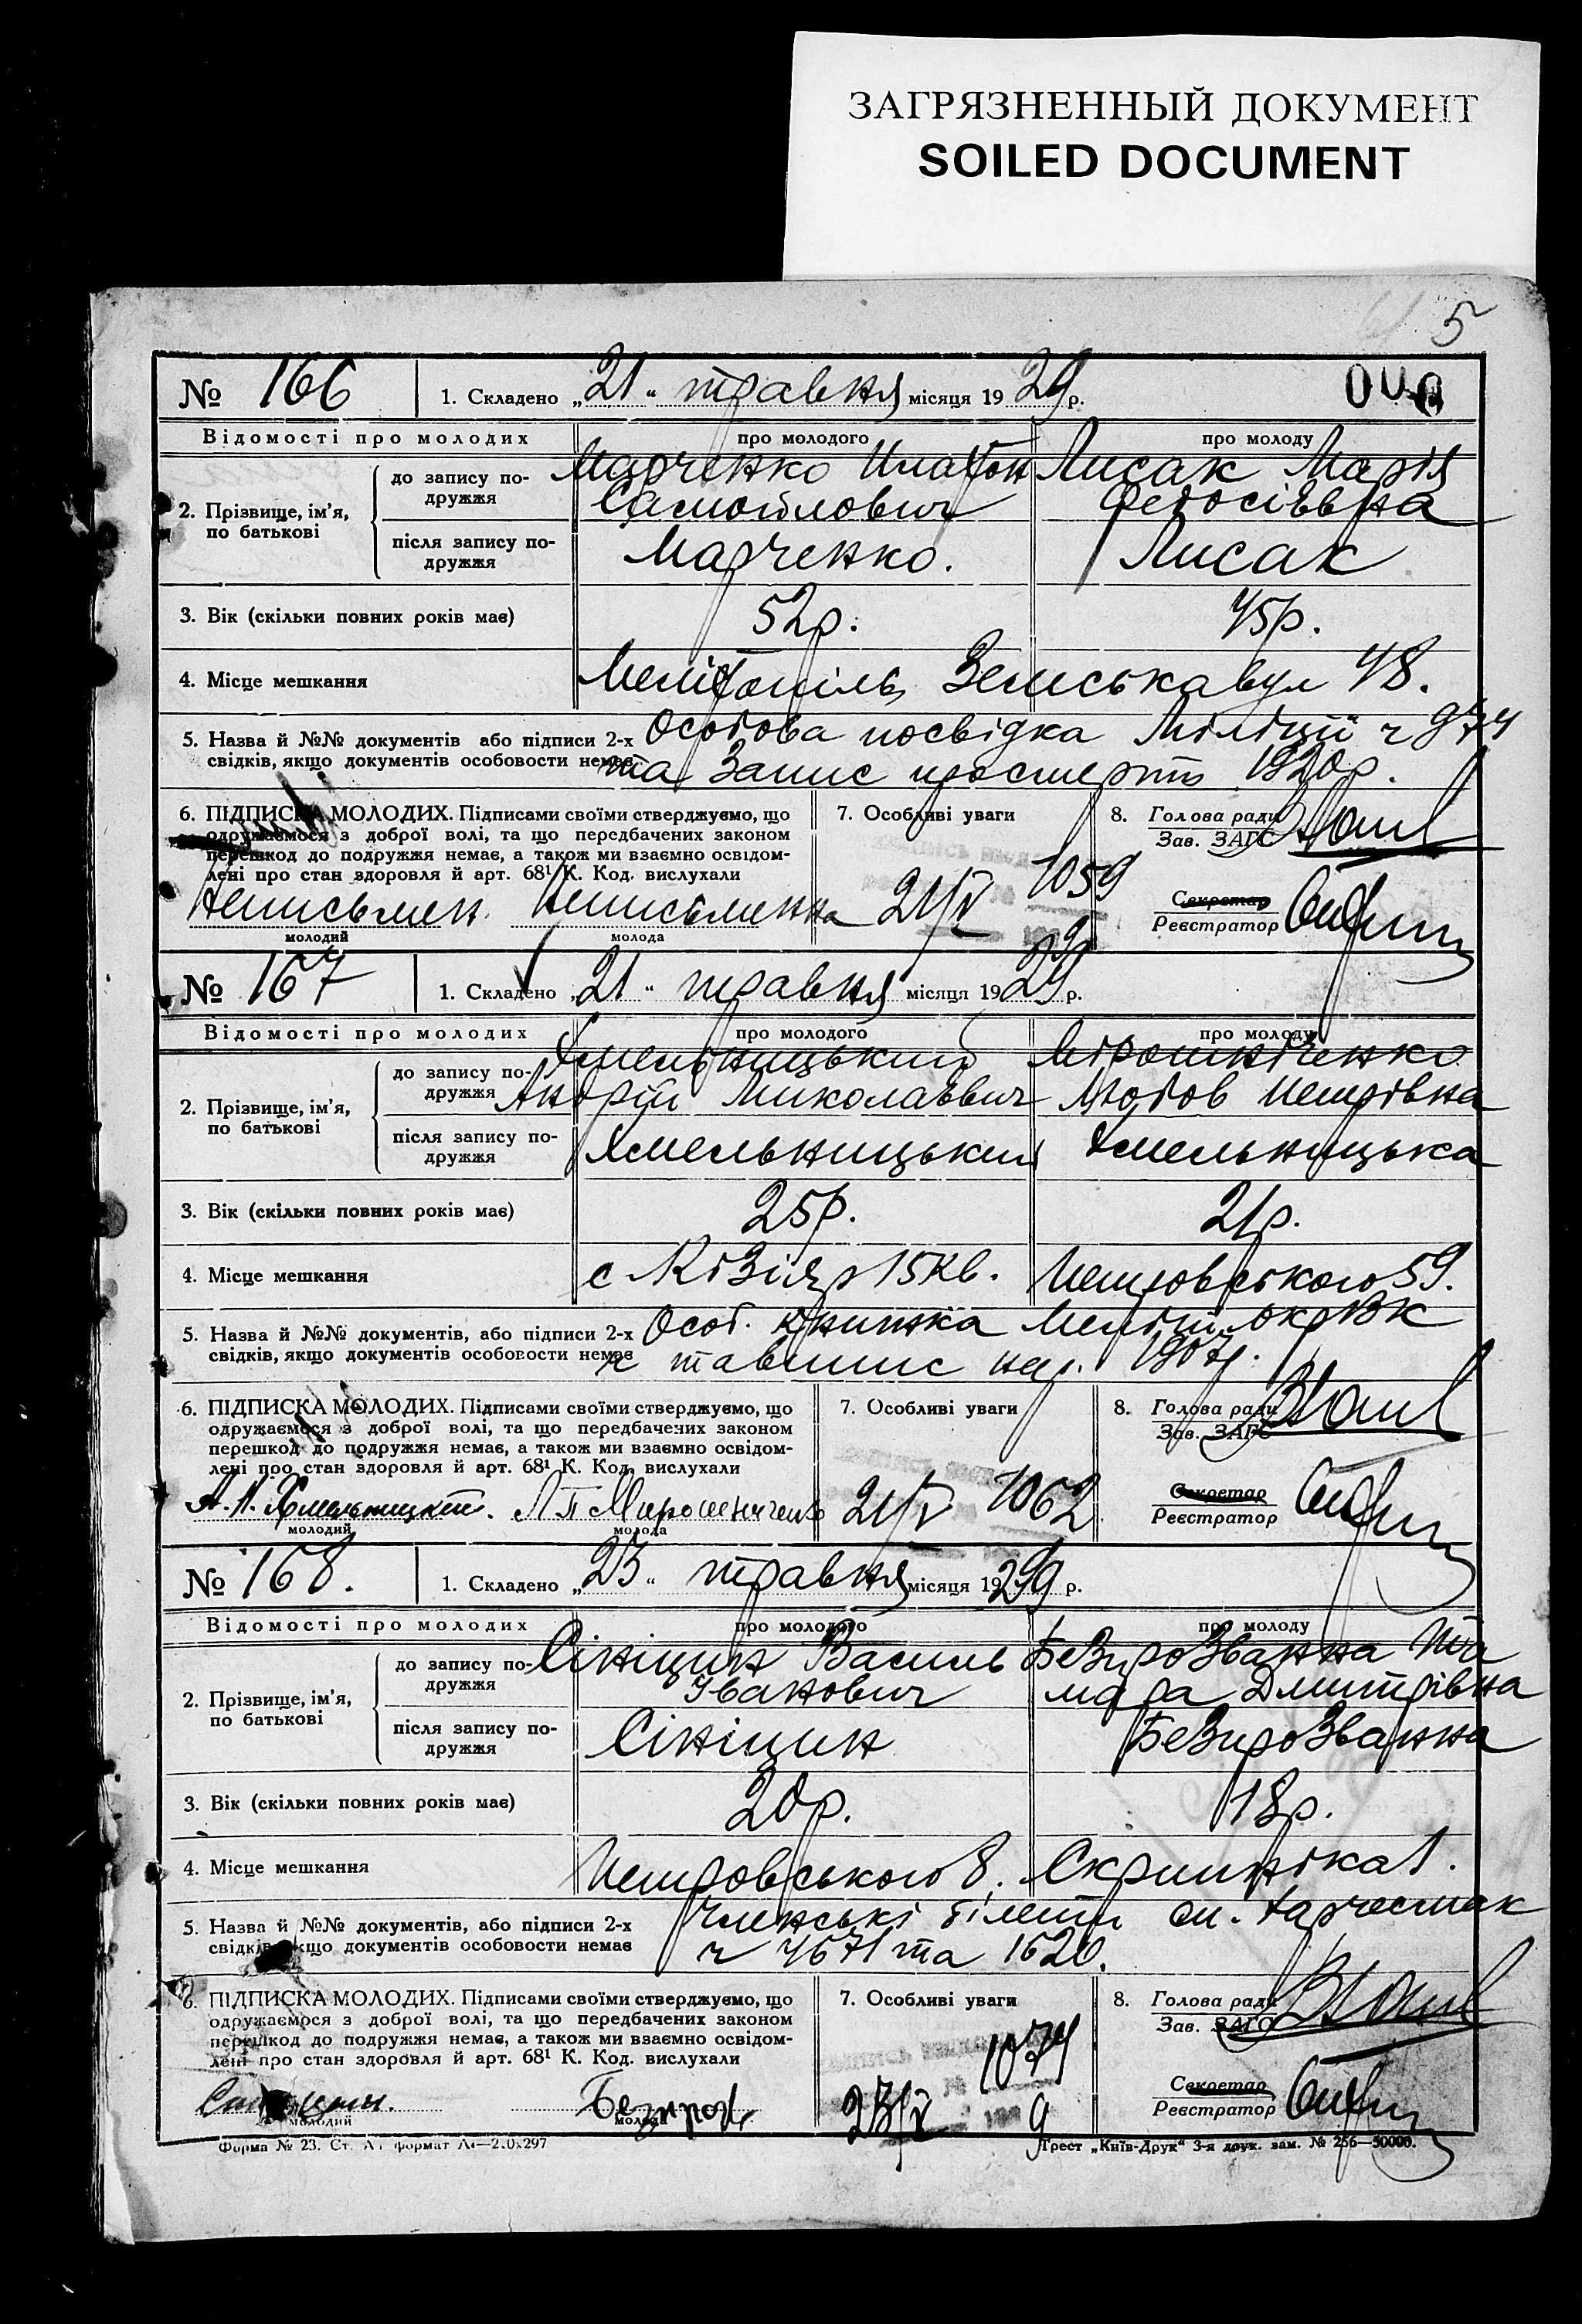 ЗАГРЯЗНЕННЫЙ ДОКУМЕНТ
SOILED DOCUMENT
5
№ 166 1. Складено „21“ травня місяця 1929 р.
Відомості про молодих про молодого про молоду
2. Прізвище, ім’я, по батькові
до запису подружжя Марченко Платон Самойлович Лисак Марія Федосіївна
після запису подружжя Марченко. Лисак
3. Вік (скільки повних років має) 52р. 45р.
4. Місце мешкання Мелітопіль, Земська вул 48.
5. Назва й №№ документів або підписи 2-х Особова посвідка Міліції ч 974
свідків, якщо документів особовости немає та Запис про смерть 1920р.
6. ПІДПИСКА МОЛОДИХ. Підписами своїми стверджуємо, що
одружаємося з доброї волі, та що передбачених законом
перешкод до подружжя немає, а також ми взаємно освідом-
лені про стан здоровля й арт. 68¹ К. Код. вислухали
Неписьмен. Неписьменна
молодий молода
7. Особливі уваги
21/V 1059
29
8. Голова ради
Зав. ЗАГС
Секретар
Реєстратор
№ 167 1. Складено „21“ травня місяця 1929 р.
Відомості про молодих про молодого про молоду
2. Прізвище, ім’я, по батькові
до запису подружжя Хмельницький Андрій Миколаєвич Мірошніченко Любов Петрівна
після запису подружжя Хмельницький Хмельницька
3. Вік (скільки повних років має) 25р. 21р.
4. Місце мешкання с Кізіяр 15кв. Петровського 59.
5. Назва й №№ документів, або підписи 2-х Особ. книжка Меліт. ОкрВК
свідків, якщо документів особовости немає 1907р.
6. ПІДПИСКА МОЛОДИХ. Підписами своїми стверджуємо, що
одружаємося з доброї волі, та що передбачених законом
перешкод до подружжя немає, а також ми взаємно освідом-
лені про стан здоровля й арт. 68¹ К. Код. вислухали
А. Н. Хмельницкий. Л П Мирошниченко
молодий молода
7. Особливі уваги
21/V 1062
8. Голова ради
Зав. ЗАГС
Секретар
Реєстратор
№ 168. 1. Складено „23“ травня місяця 1929 р.
Відомості про молодих про молодого про молоду
2. Прізвище, ім’я, по батькові
до запису подружжя Сініцин Василь Іванович Безпрозванна Тамара Дмитрівна
після запису подружжя Сініцин Безпрозванна
3. Вік (скільки повних років має) 20р. 18р.
4. Місце мешкання Петровського 8. Скрипніка 1.
5. Назва й №№ документів, або підписи 2-х Членські білети сп. Харчосмак
свідків, якщо документів особовости немає ч 4671 та 1620.
6. ПІДПИСКА МОЛОДИХ. Підписами своїми стверджуємо, що
одружаємося з доброї волі, та що передбачених законом
перешкод до подружжя немає, а також ми взаємно освідом-
лені про стан здоровля й арт. 68¹ К. Код. вислухали
молодий молода
7. Особливі уваги
23/V 1074
9
8. Голова ради
Зав. ЗАГС
Секретар
Реєстратор
Форма № 23. Ст. формат А4—210x297 Трест „Київ-Друк“ 3-я друк. зам. № 256—50000.